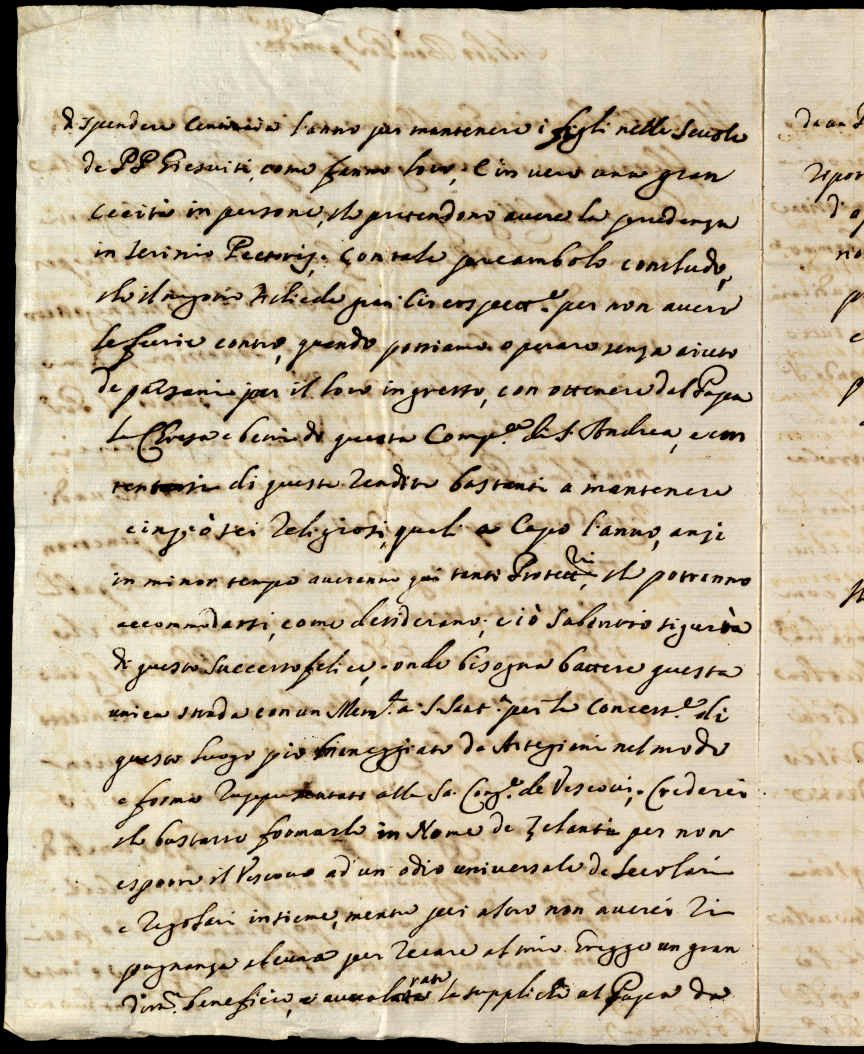 di spendere centinaia l'anno per mantenere i figli nelle Scuole
de PP Giesuiti, come fanno loro, è in vero una gran
cecità in persone, che pretendono avere la prudenza
in scrinio Pectoris. Con tale preambolo concludo,
che il negozio richiede gran circospett.e per non avere
le furie contro, quando possiamo operare senza aiuto
de paesani per il loro ingresso, con ottenere dal Papa
la Chiesa e beni di questa Comp.a di S. Andrea, e con
di queste rendite bastanti a mantenere
cinq. ò sei Religiosi, quali a Capo l'anno, anzi
in minor tempo averanno qui tanti Protettri, che potranno
accommodarsi, come desiderano; e ciò Salentro sigurtà
di questo successo felice; onde bisogna battere questa
unica strada con un Mem.le a S. Sant.a per la Concess.e di
questo luogo pio maneggiato da Artegiani nel modo
e forma rappresentata alla Sa. Cong.e de Vescovi. Crederei
che bastasse formarle in Nome de Zelanti per non
esporre il Vescovo ad un odio universale de Secolari
e Regolari insieme, mentre per altro non averei ri-
pugnanza alcuna per recare al mio Gregge un gran
benefizio, e avvalorare le suppliche al Papa da
da un
ripor
d'o
no
p
e
p